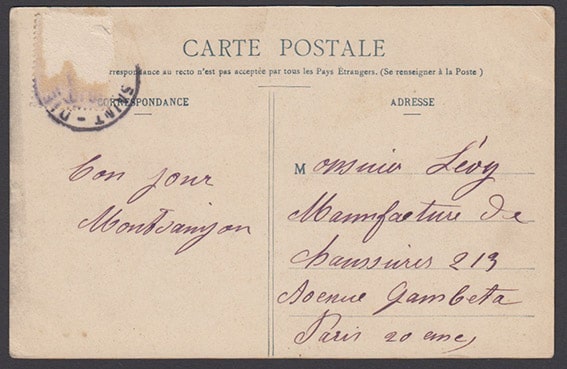 CARTE POSTALE
correspondance au recto n'est pas acceptée par tous les Pays Étrangers. (Se renseigner à la Poste)
CORRESPONDANCE
ADRESSE
SAINT-DI
Bon jour
Monsieur Lévy
Manufacture de
chaussures 213
Avenue Gambeta
Paris 20 eme,